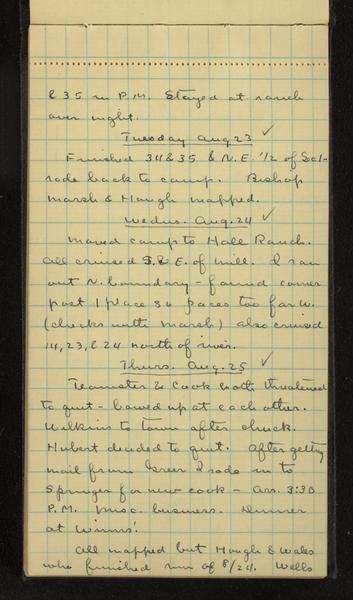 & 35 in P.M. Stayed at ranch
over night.
Tuesday Aug 23 ✓
Finished 34 & 35 & N.E. 1/2 of Sal-
rode back to camp. Bishop
Marsh & Hough mapped.
Wednes. Aug. 24 ✓
Moved camp to Hall Ranch.
All cruised S. & E. of mill. I ran
out N. boundary - found corner
post 1 place 86 paces too far W.
(checks with Marsh) also cruised
14, 23, & 24 north of river.
Thurs. Aug. 25 ✓
Teamster & Cook both threatened
to quit - bowed up at each other.
Wilkins to town after chuck.
Hubert decided to quit. After getting
mail from Greer I rode in to
Springer for new cook - Arr. 3:30
P.M. Misc. business. Dinner
at Winns'.
All mapped but Hough & Wales
who finished run of 8/24. Wells